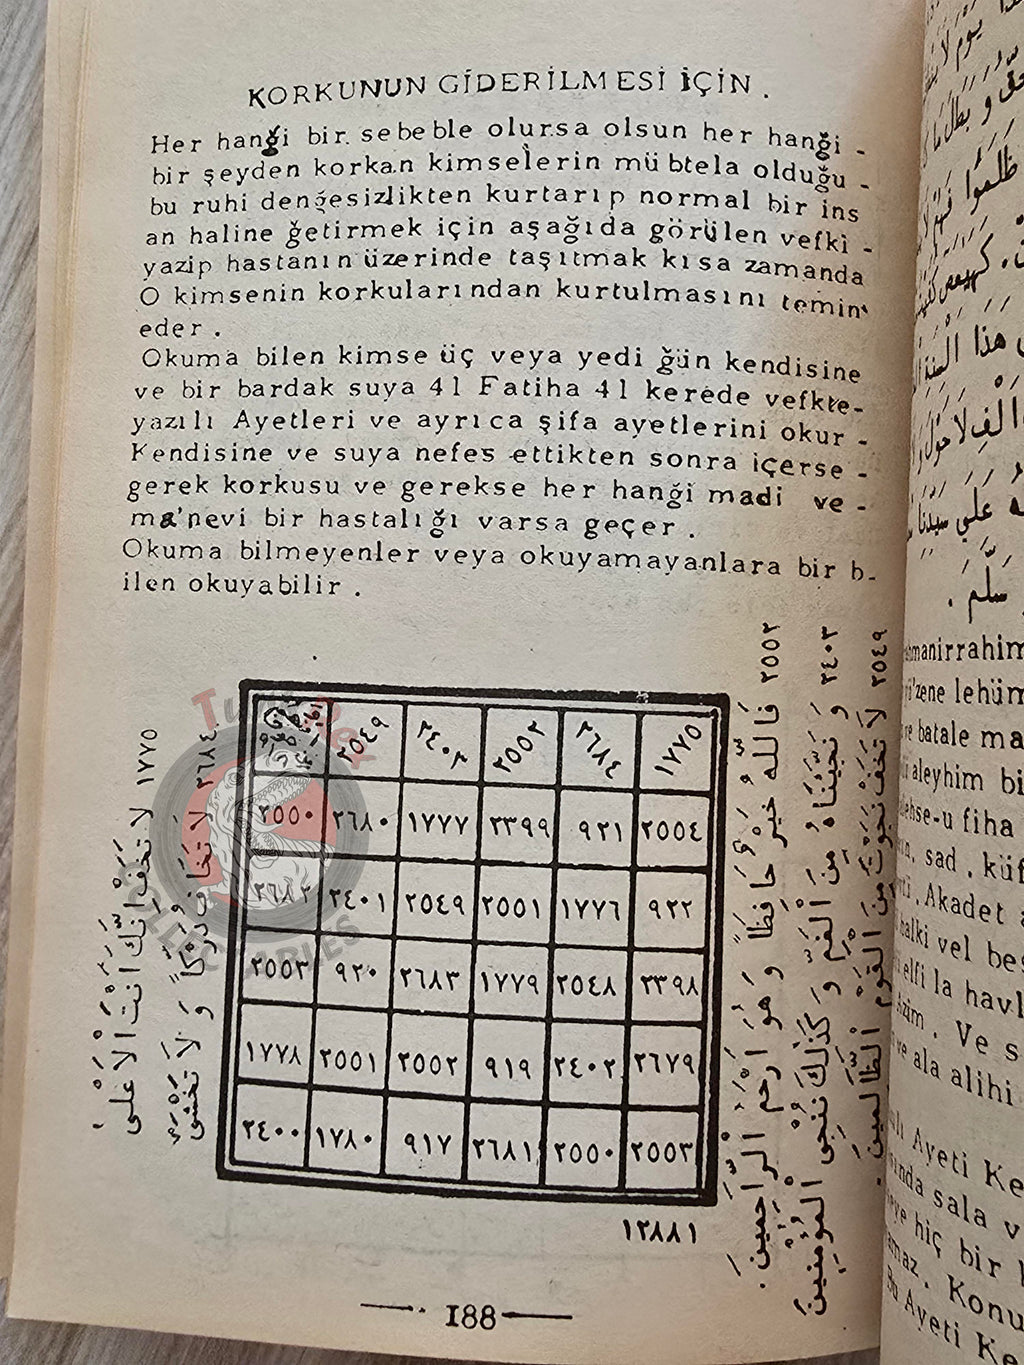 KORKUNUN GİDERİLMESİ İÇİN .
Her hanği bir sebeble olursa olsun her hanği -
bir şeyden korkan kimselerin mübtela olduğu -
bu ruhi denğesizlikten kurtarıp normal bir ins
an haline ğetirmek için aşağıda görülen vefki -
yazip hastanın üzerinde taşıtmak kısa zamanda
O kimsenin korkularından kurtulmasını temin
eder .
Okuma bilen kimse üç veya yedi ğün kendisine
ve bir bardak suya 41 Fatiha 41 kerede vefkte-
yazılı Ayetleri ve ayrıca şifa ayetlerini okur -
Kendisine ve suya nefes ettikten sonra içerse -
gerek korkusu ve gerekse her hanği madi ve -
ma'nevi bir hastalığı varsa geçer .
Okuma bilmeyenler veya okuyamayanlara bir b-
ilen okuyabilir .
٢٥٤٩ ٢٤٠٣ ٢٥٥٢ ٢٦٨٤ ١٧٧٥
٢٥٥٠ ٢٦٨٠ ١٧٧٧ ٢٣٩٩ ٩٢١ ٢٥٥٤
٢٦٨٢ ٢٤٠١ ٢٥٤٩ ٢٥٥١ ١٧٧٦ ٩٢٢
٢٥٥٣ ٩٢٠ ٢٦٨٣ ١٧٧٩ ٢٥٤٨ ٢٣٩٨
١٧٧٨ ٢٥٥١ ٢٥٥٢ ٩١٩ ٢٤٠٢ ٢٦٧٩
٢٤٠٠ ١٧٨٠ ٩١٧ ٢٦٨١ ٢٥٥٠ ٢٥٥٣
١٢٨٨١
١٧٧٥ لَا تَخَفْ اِنَّكَ اَنْتَ الْاَعْلَى
٢٦٨٤ لَا تَخَافُ دَرَكاً وَ لَا تَخْشَى
٢٥٥٢ فَاللّٰهُ خَيْرٌ حَافِظًا وَ هُوَ اَرْحَمُ الرَّاحِمِينَ .
٢٤٠٣ وَ نَجَّيْنَاهُ مِنَ الْغَمِّ وَ كَذٰلِكَ نُنْجِى الْمُؤْمِنِينَ
٢٥٤٩ لَا تَخَفْ نَجَوْتَ مِنَ الْقَوْمِ الظَّالِمِينَ .
188
هَذَا
سَلَّمَ .
lehüm
batale
aleyhim
fiha
sad . küf
Akadet
halki vel
elfi la havl
Azim . Ve
ve ala alihi
Ayeti Ke
sala v
hiç bir
Konu
Bu Ayeti Ke